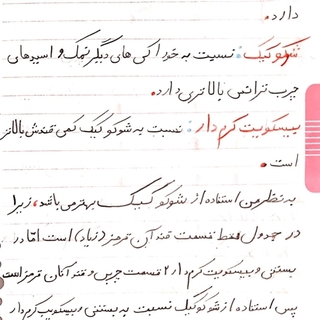 دارد.
شوکوکیک: نسبت به خوراکی های دیگر نمک و اسیدهای
چرب ترانس بالاتری دارد.
بیسکویت کرم دار: نسبت به شوکوکیک کمی قندش بالاتر
است.
به نظر من استفاده از شوکوکیک بهتر می باشد، زیرا
در جدول فقط قسمت قند آن قرمز (زیاد) است اما در
بستنی و بیسکویت کرم دار ۲ قسمت چربی و قند آنان قرمز است
پس استفاده از شوکوکیک نسبت به بستنی و بیسکویت کرم دار